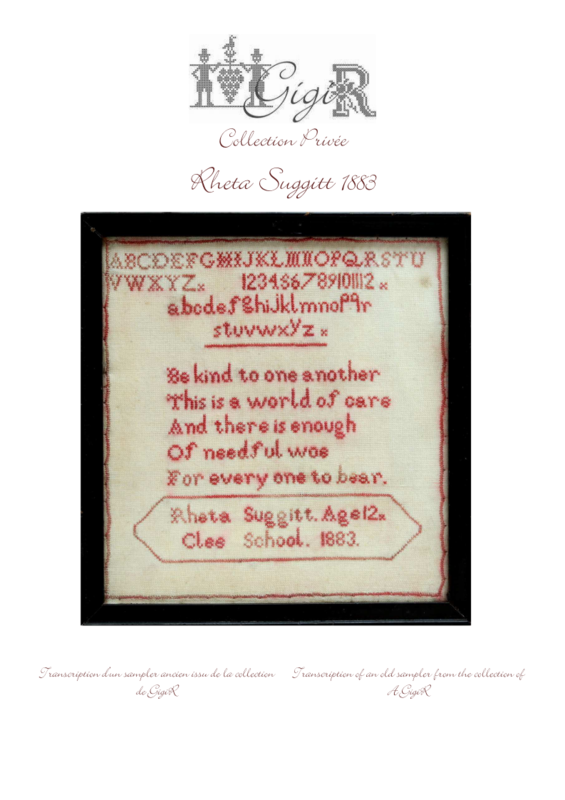 GigiR
Collection Privée
Rheta Suggitt 1883
ABCDEFGHIJKLMNOPQRSTU
VWXYZx 123456789101112 x
abcdefghijklmnopqr
stuvwxyz x
Be kind to one another
This is a world of care
And there is enough
Of needful woe
For every one to bear.
Rheta Suggitt. Age12x
Clee School. 1883.
Transcription d'un sampler ancien issu de la collection
de GigiR
Transcription of an old sampler from the collection of
A.GigiR